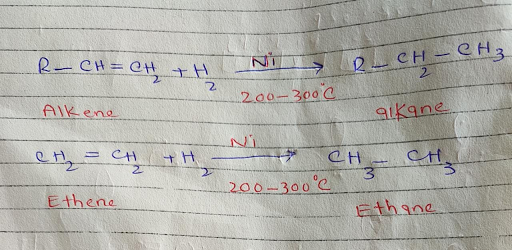 R – CH = CH₂ + H₂ Ni 200–300°C → R – CH₂ – CH3
Alkene alkane
CH₂ = CH₂ + H₂ Ni 200–300°C → CH₃ – CH₃
Ethene Ethane